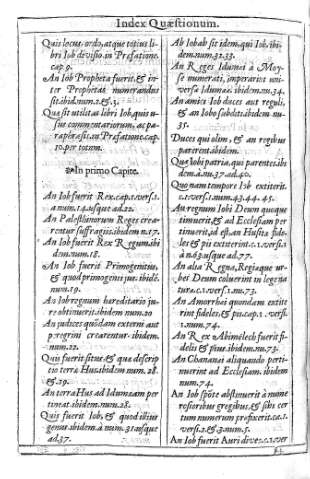 Index Quæstionum.
Quis locus, ordo, atque totius libri Iob divisio in Præfatione.
cap.9.
An Iob Propheta fuerit, & inter Prophetas numerandus
sit. ibid. num.2. & 3.
Quæ sit utilitas libri Iob, quis usus commentariorum, ac paraphrasis. in Præfatione. cap.
10. per totum.
In primo Capite.
An Iob fuerit Rex. cap.1. vers.1.
a num.14. usque ad 22.
An Palæstinorum Reges crearentur suffragiis. ibidem n.17.
An Iob fuerit Rex Regum. ibidem. num.18.
An Iob fuerit Primogenitus,
& quod primogenij jus. ibidẽ.
num.19.
An Iob regnum hereditario jure obtinuerit. ibidem num.20
An judices quõdam externi aut
peregrini crearentur. ibidem.
num.22.
Quis fuerit situs, & quæ descriptio terræ Hus. ibidem num. 28.
& 29.
An terra Hus ad Idumæam pertineat. ibidem num.28.
Quis fuerit Iob, & quod illius
genus. ibidem à num. 31. usque
ad 37.
Ab Iobab sit idem, qui Iob. ibidem. num.32.33.
An Reges Idumæi à Moyse numerati, imperarint universæ Idumææ. ibidem. nu.34.
An amici Iob duces aut reguli,
& an Iobo subditi. ibidem nu.
35.
Duces qui olim, & an regibus
parerent. ibidem.
Quæ Iobi patria, qui parentes. ibidem. à nu.37. ad 40.
Quo nam tempore Iob extiterit.
c.1. vers.1. num.43. 44. 45.
An regnum Iobi Deum quoque
timuerit, & ad Ecclesiam pertinuerit, id est, an Husitæ fideles & pij extiterint. c.1. vers.1
à n.63. usque ad.77.
An alia Regna, Regiæque urbes Deum coluerint in lege naturæ. c.1. vers.1. nu.73.
An Amorrhæi quondam extiterint fideles, & pij. cap.1. vers.
1. num.74.
An Rex Abimelech fuerit fidelis & pius. ibidem. nu.73.
An Chananæi aliquando pertinuerint ad Ecclesiam. ibidem
num.74.
An Iob spõte abstinuerit à numerosioribus gregibus, & sibi certum numerum præfixerit. ca.1.
vers.2. & 3. num.5.
An Iob fuerit Auri dives. c.1. ver